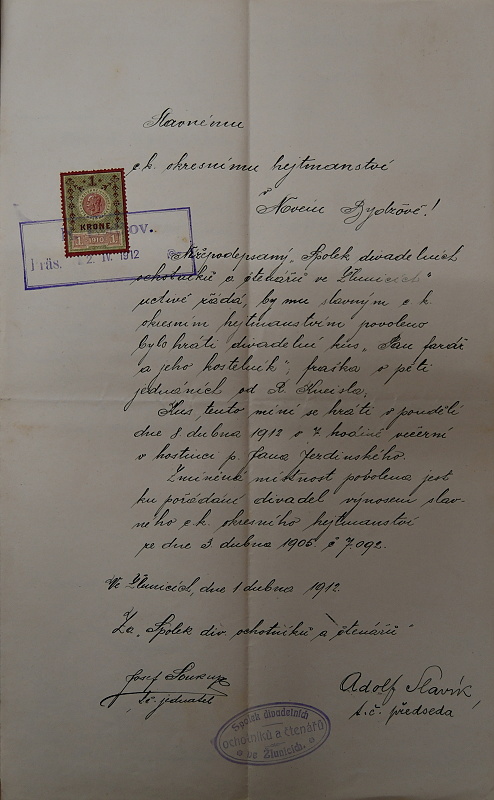 Slavnému
c.k. okresnímu hejtmanství
v Novém Bydžově!
1
KRONE
1 1910 1
ov..
Präs. 2. IV. 1912
Nížepodepsaný „Spolek divadelních
ochotníků a čtenářů ve Žlunicích"
uctivě žádá, by mu slavným c.k.
okresním hejtmanstvím povoleno
bylo hráti divadelní kus „Pan farář
a jeho kostelník", fraška v pěti
jednáních od R. Kneisla.
Kus tento míní se hráti v pondělí
dne 8. dubna 1912 v 7. hodině večerní
v hostinci p. Jana Jerdinského.
Zmíněná místnost povolena jest
ku pořádání divadel výnosem slav-
ného c.k. okresního hejtmanství
ze dne 3. dubna 1905 č 7.092.
Ve Žlunicích, dne 1 dubna 1912.
Za „Spolek div. ochotníků a čtenářů"
Josef Soukup
t.č. jednatel
Adolf Slavík,
t.č. předseda
Spolek divadelních
ochotníků a čtenářů
ve Žlunicích.